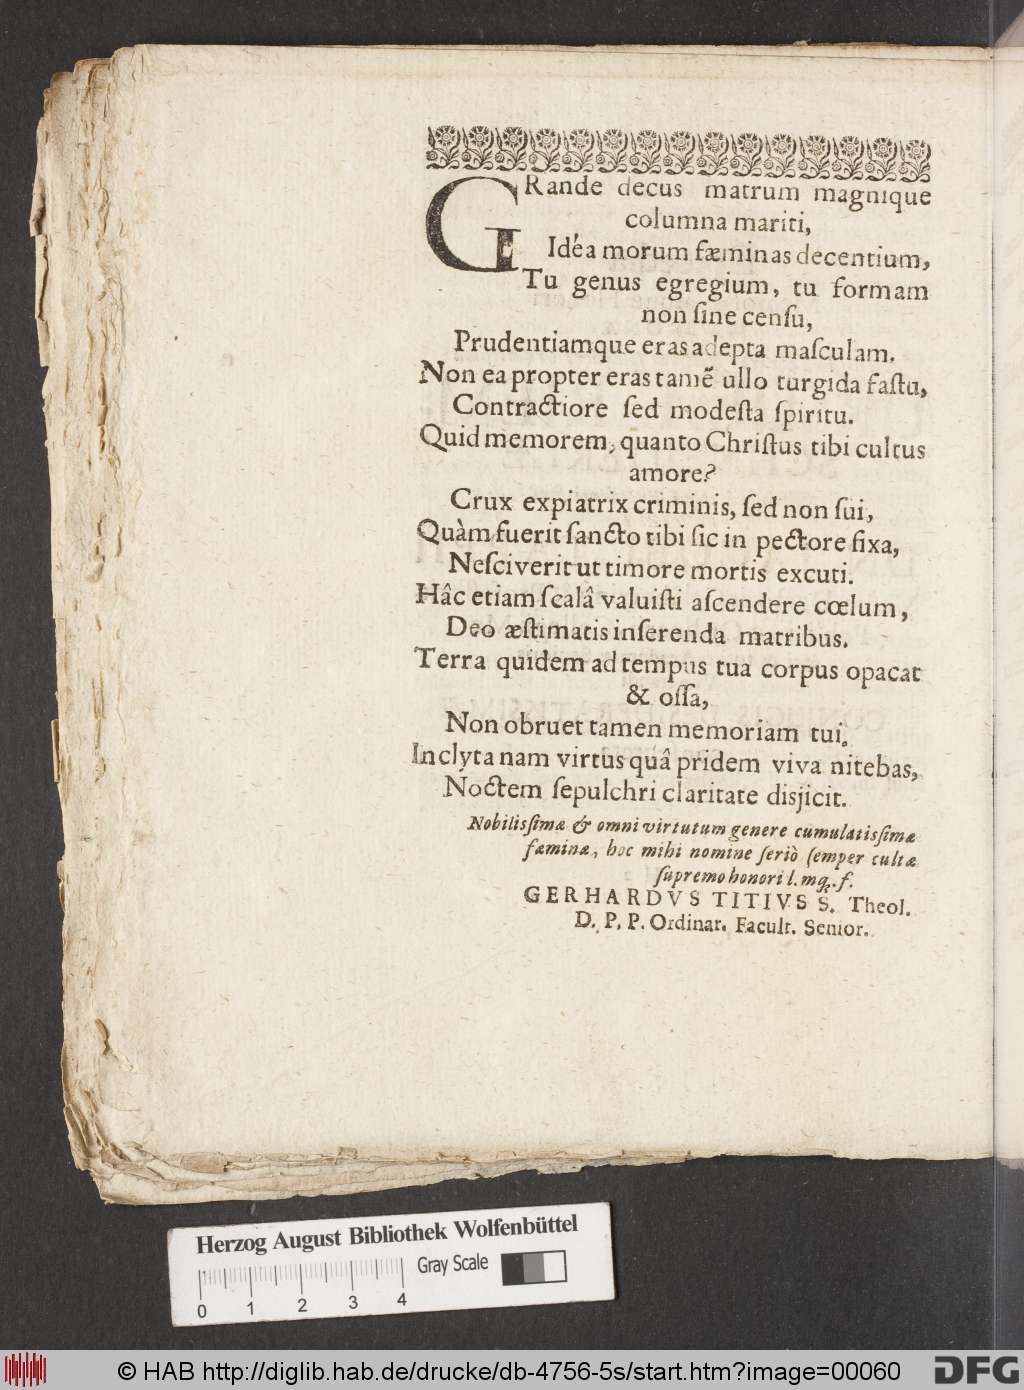 GRande decus matrum magnique
columna mariti,
Idéa morum fæminas decentium,
Tu genus egregium, tu formam
non ſine cenſu,
Prudentiamque eras adepta maſculam.
Non ea propter eras tamẽ ullo turgida faſtu,
Contractiore ſed modeſta ſpiritu.
Quid memorem, quanto Chriſtus tibi cultus
amore?
Crux expiatrix criminis, ſed non ſui,
Quàm fuerit ſancto tibi ſic in pectore fixa,
Neſciverit ut timore mortis excuti.
Hâc etiam ſcalâ valuiſti aſcendere cœlum,
Deo æſtimatis inſerenda matribus.
Terra quidem ad tempus tua corpus opacat
& oſſa,
Non obruet tamen memoriam tui.
Inclyta nam virtus quâ pridem viva nitebas,
Noctem ſepulchri claritate disjicit.
Nobiliſſimæ & omni virtutum genere cumulatiſſimæ
fæminæ, hoc mihi nomine ſeriò ſemper cultæ
ſupremo honori l. mq. f.
GERHARDVS TITIVS S. Theol.
D. P. P. Ordinar. Facult. Senior.
Herzog August Bibliothek Wolfenbüttel
Gray Scale
0 1 2 3 4
© HAB http://diglib.hab.de/drucke/db-4756-5s/start.htm?image=00060
DFG